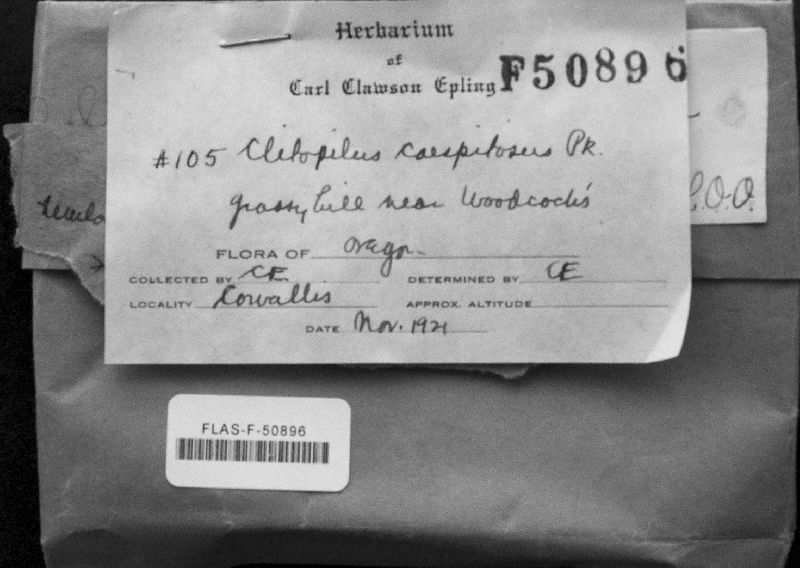 Herbarium
of
Carl Clawson Epling
F50896
#105 Clitopilus caespitosus Pk.
grassy hill near Woodcock's
FLORA OF Oregon
COLLECTED BY CE DETERMINED BY CE
LOCALITY Corvallis APPROX. ALTITUDE
DATE Nov. 1921
FLAS-F-50896